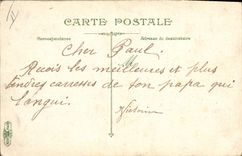 CARTE POSTALE
Correspondance
Adresse du destinataire
Cher Paul.
Reçois les meilleures et plus
tendres caresses de ton papa qui
languit.